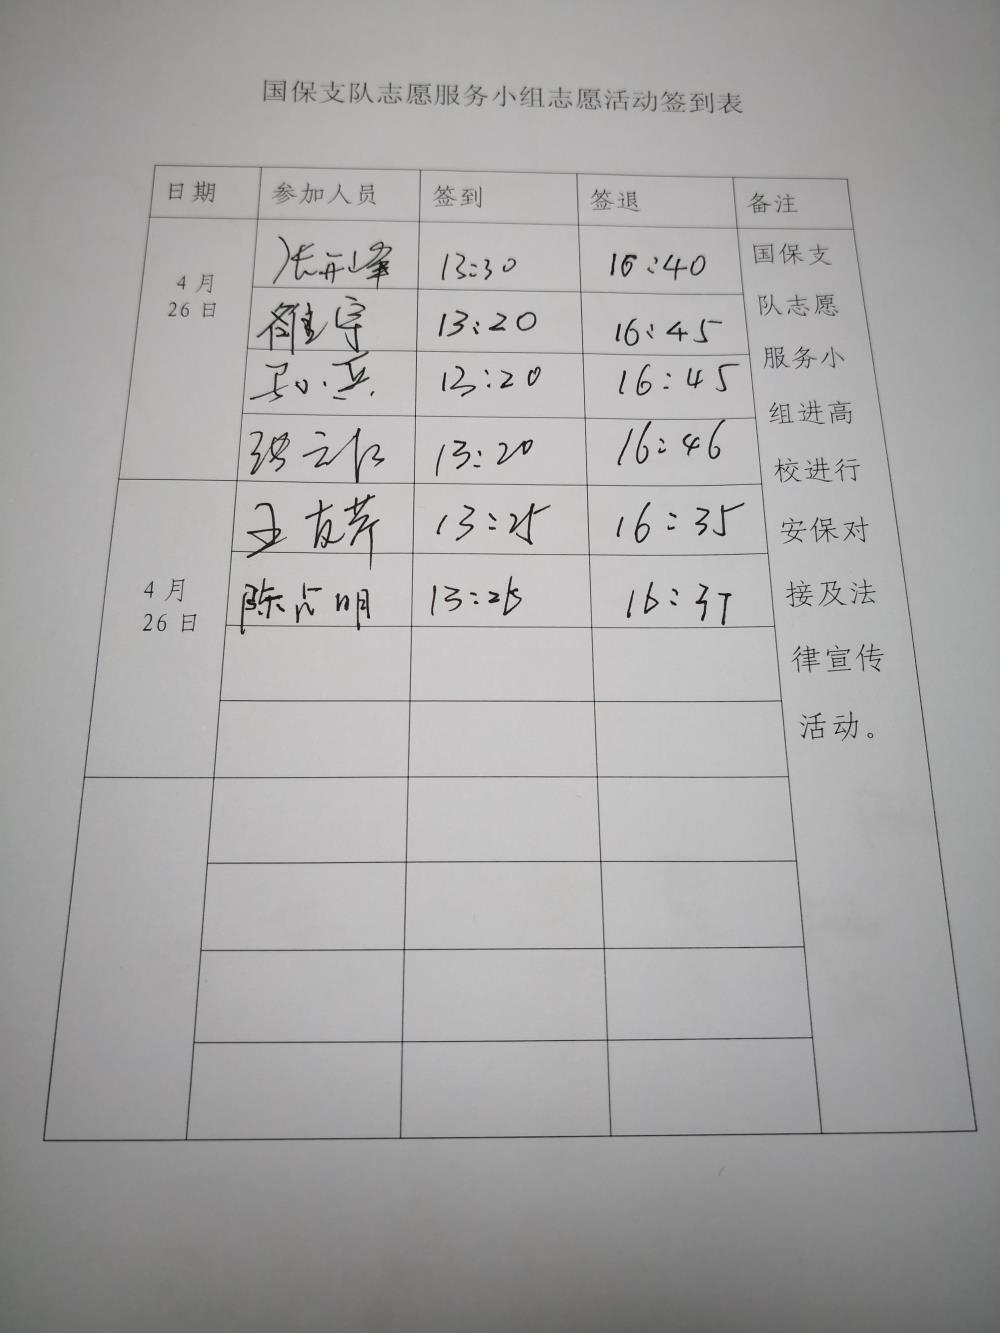 国保支队志愿服务小组志愿活动签到表
日期 参加人员 签到 签退 备注
4月
26日
13:30 16:40
13:20 16:45
13:20 16:45
张云仁 13:20 16:46
4月
26日
王友芹 13:25 16:35
陈占明 13:26 16:37
国保支
队志愿
服务小
组进高
校进行
安保对
接及法
律宣传
活动。